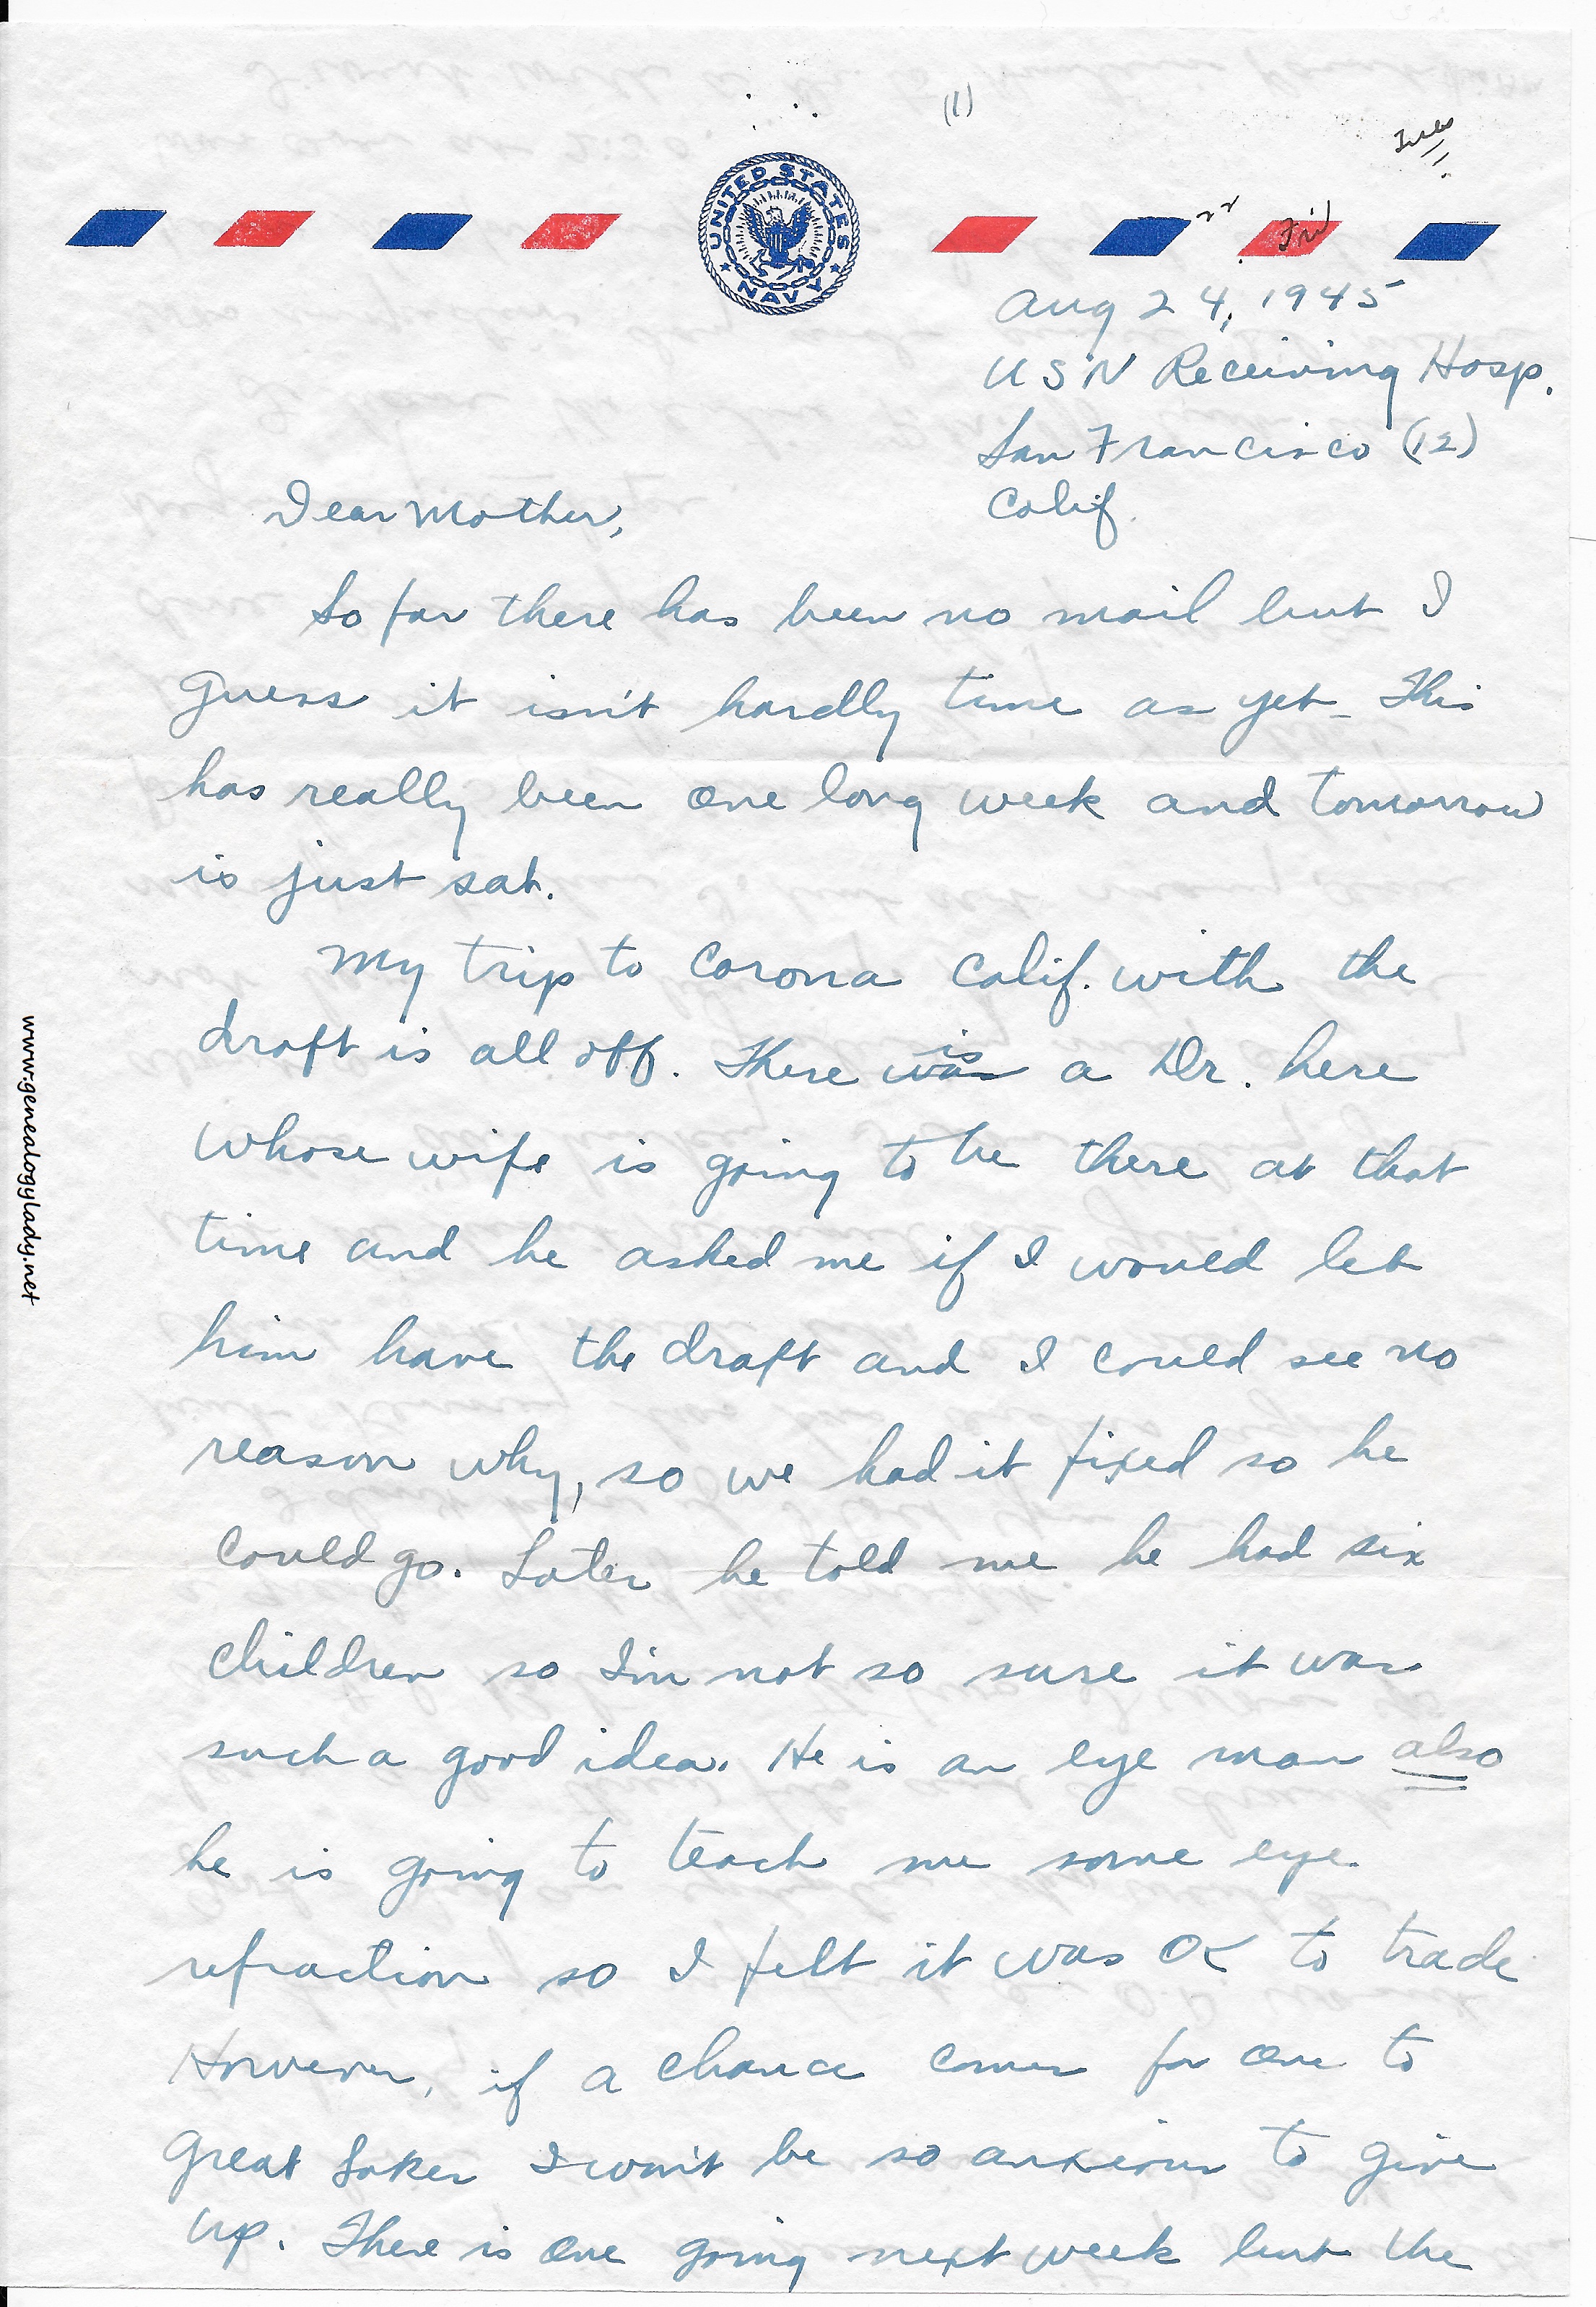 (1)
UNITED STATES
NAVY
Fri
Aug 24, 1945
USN Receiving Hosp.
San Francisco (12)
Calif.
Dear Mother,
So far there has been no mail but I
guess it isn't hardly time as yet. This
has really been one long week and tomorrow
is just sat.
My trip to Corona Calif. with the
draft is all off. There was is a Dr. here
whose wife is going to be there at that
time and he asked me if I would let
him have the draft and I could see no
reason why, so we had it fixed so he
could go. Later he told me he had six
children so I'm not so sure it was
such a good idea. He is an eye man also
he is going to teach me some eye
refraction so I felt it was OK to trade
However, if a chance comes for one to
Great Lakes I won't be so anxious to give
up. There is one going next week but the
www.genealogylady.net